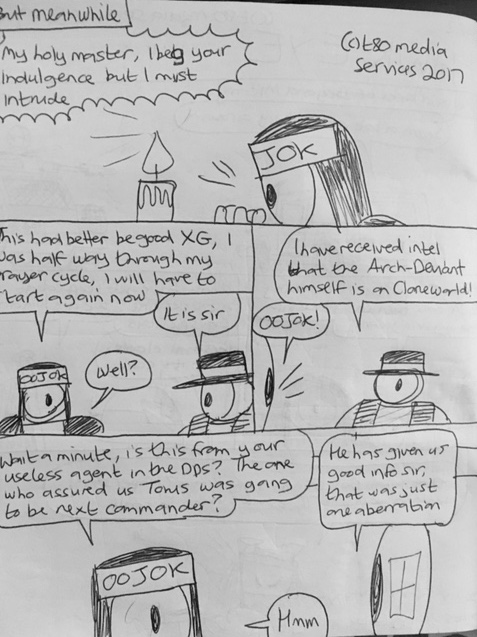 But meanwhile
My holy master, I beg your
indulgence but I must
intrude
(C) T80 media
Services 2017
JOK
This had better be good XG, I
was half way through my
prayer cycle, I will have to
start again now
It is sir
Well?
OOJOK
I have received intel
that the Arch-Deviant
himself is on Cloneworld!
OOJOK!
Wait a minute, is this from your
useless agent in the DPS? The one
who assured us Toms was going
to be next commander?
He has given us
good info sir,
that was just
one aberration
OOJOK
Hmm